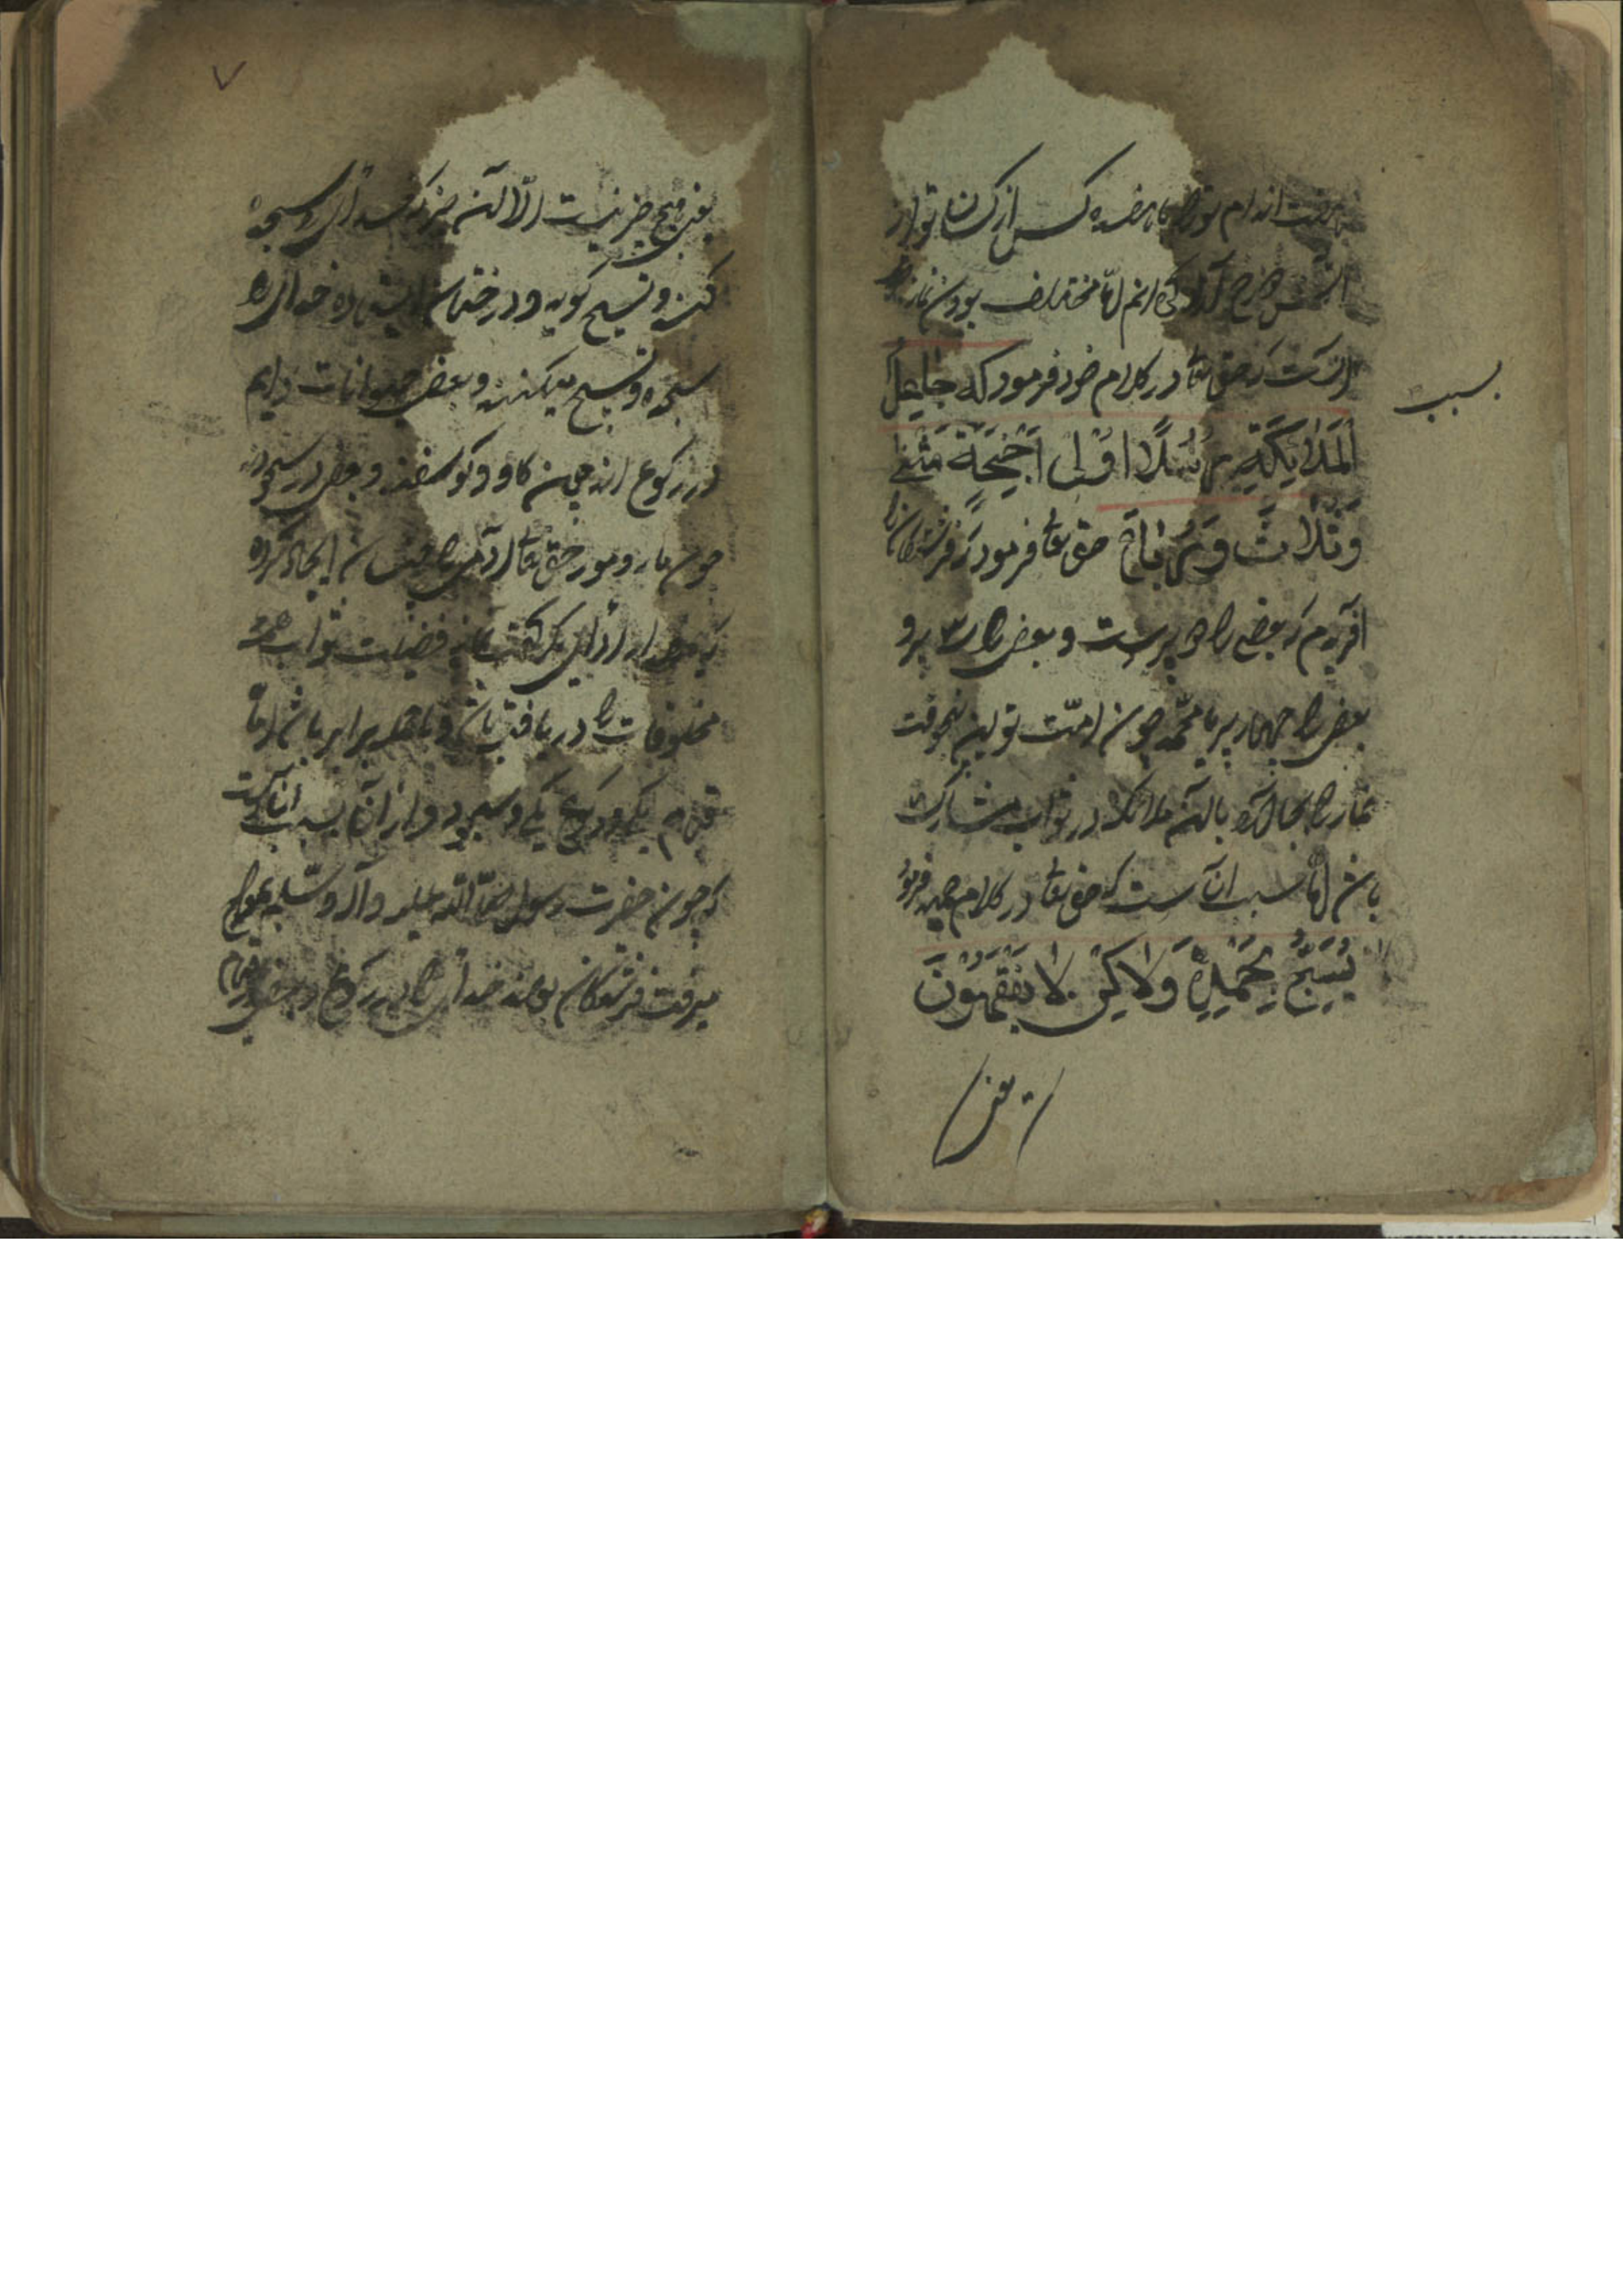 هفت اندام تو را تا هفده کس از کسان تو از
آتش دوزخ آزاد کردانم اما مختلف بودن نماز
بسبب
آنست که حق تعا در کلام خود فرمود که جَاعِلِ
اَلْمَلَائِکَةِ رُسُلًا اُوْلِی اَجْنِحَةٍ مَثْنٰی
وَثُلَاثَ وَرُبَاعَ حق تعا فرمود که فرشتکان را
آفریدم که بعضی را دو پر است و بعضی را سه پر و
بعضی را چهار پر یا محمد چون امت تو این
نماز را بجا آرد با آن ملائکه در ثواب مشارک
باشد اما سبب آنست که حق تعا در کلام مجید فرمود
یُسَبِّحُ بِحَمْدِهٖ وَلَاکِنْ لَا تَفْقَهُوْنَ
یعنی
یعنی هیچ چیز نیست الا آن نیز که خدای را سجده
کند و تسبیح کوید و درختان ایستاده خدای را
سجده و تسبیح میکنند و بعضی حیوانات دایم
در رکوع اند چون کاو و کوسفند و بعضی در سجود
چون مار و مور حق تعا آدمی را چنان ایجاد کرده
که بعد از ادای یک رکعت نماز فضیلت ثواب همه
مخلوقات را دریافته باشد و با همه برابر باشد اما
قیام یکی و رکوع یکی و سجود دو از آن بسبب آنست
که چون حضرت رسول صلی الله علیه وآله وسلم بمعراج
میرفت فرشتکان بودند خدای را در رکوع و بعضی در قیام